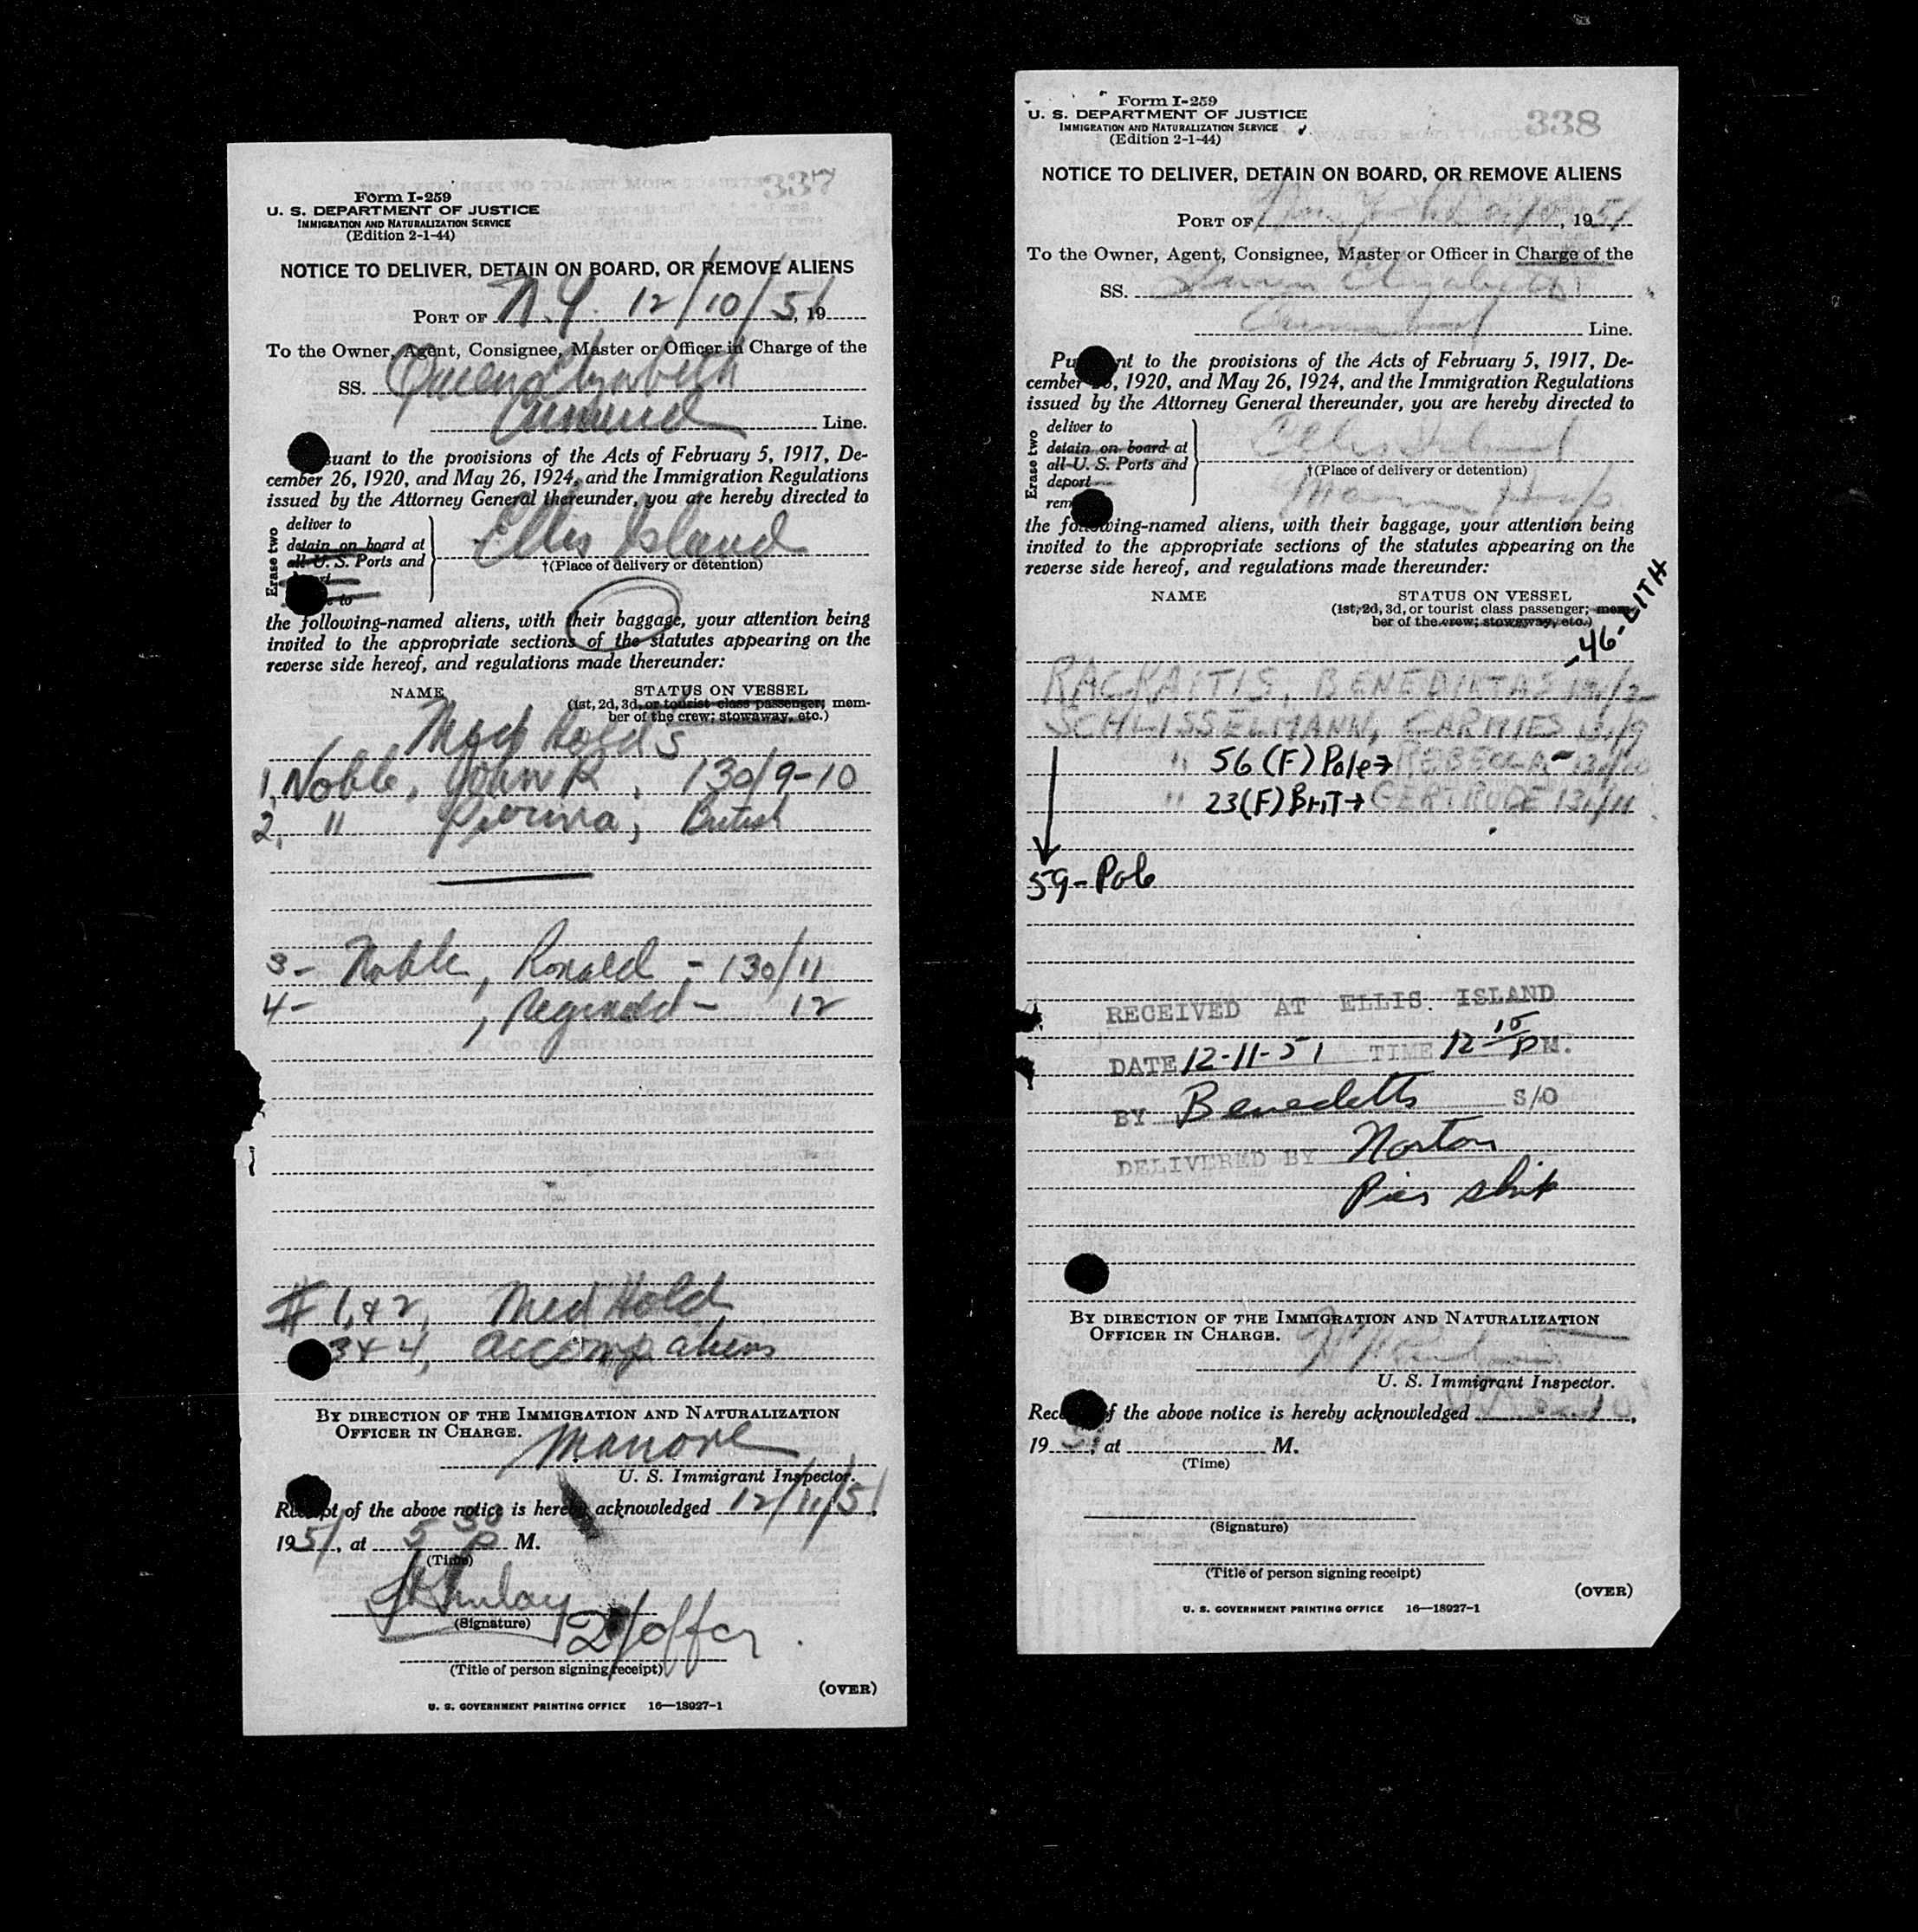 337
Form I-259
U. S. DEPARTMENT OF JUSTICE
IMMIGRATION AND NATURALIZATION SERVICE
(Edition 2-1-44)
NOTICE TO DELIVER, DETAIN ON BOARD, OR REMOVE ALIENS
PORT OF N.Y. 12/10/51, 19
To the Owner, Agent, Consignee, Master or Officer in Charge of the
SS. Queen Elizabeth
Cunard Line.
suant to the provisions of the Acts of February 5, 1917, De-
cember 26, 1920, and May 26, 1924, and the Immigration Regulations
issued by the Attorney General thereunder, you are hereby directed to
Erase two
deliver to
detain on board at
all U. S. Ports and
to
Ellis Island
†(Place of delivery or detention)
the following-named aliens, with their baggage, your attention being
invited to the appropriate sections of the statutes appearing on the
reverse side hereof, and regulations made thereunder:
NAME STATUS ON VESSEL
(1st, 2d, 3d, or tourist class passenger; mem-
ber of the crew; stowaway, etc.)
Med Holds
1, Noble, John R, 130/9-10
2, " British
3- Noble, Ronald - 130/11
4- , Reginald - 12
# 1, & 2, Med Hold
3 & 4, accomp aliens
BY DIRECTION OF THE IMMIGRATION AND NATURALIZATION
OFFICER IN CHARGE.
U. S. Immigrant Inspector.
Receipt of the above notice is hereby acknowledged 12/11/51,
1951, at 5 30 P M.
(Time)
(Signature)
2/offcr
(Title of person signing receipt)
(OVER)
U. S. GOVERNMENT PRINTING OFFICE 16—18927-1
338
Form I-259
U. S. DEPARTMENT OF JUSTICE
IMMIGRATION AND NATURALIZATION SERVICE
(Edition 2-1-44)
NOTICE TO DELIVER, DETAIN ON BOARD, OR REMOVE ALIENS
PORT OF New York Dec 10, 1951
To the Owner, Agent, Consignee, Master or Officer in Charge of the
SS. Queen Elizabeth
Cunard Line.
Pu nt to the provisions of the Acts of February 5, 1917, De-
cember , 1920, and May 26, 1924, and the Immigration Regulations
issued by the Attorney General thereunder, you are hereby directed to
Erase two
deliver to
detain on board at
all U. S. Ports and
deport
rem
Ellis Island
†(Place of delivery or detention)
the following-named aliens, with their baggage, your attention being
invited to the appropriate sections of the statutes appearing on the
reverse side hereof, and regulations made thereunder:
NAME STATUS ON VESSEL
(1st, 2d, 3d, or tourist class passenger; mem-
ber of the crew; stowaway, etc.)
46-LITH
RACKAITIS, BENEDIKTAS 131/2
SCHLISSELMANN, CARMIES 131/9
" 56 (F) Pole → REBECCA - 131/10
" 23 (F) BRIT → GERTRUDE 131/11
59-Pole
RECEIVED AT ELLIS ISLAND
DATE 12-11-51 TIME 12 15 P M.
BY Benedetto S/O
DELIVERED BY Norton
Pier
BY DIRECTION OF THE IMMIGRATION AND NATURALIZATION
OFFICER IN CHARGE.
U. S. Immigrant Inspector.
Rece f the above notice is hereby acknowledged ,
1951, at M.
(Time)
(Signature)
(Title of person signing receipt)
(OVER)
U. S. GOVERNMENT PRINTING OFFICE 16—18927-1